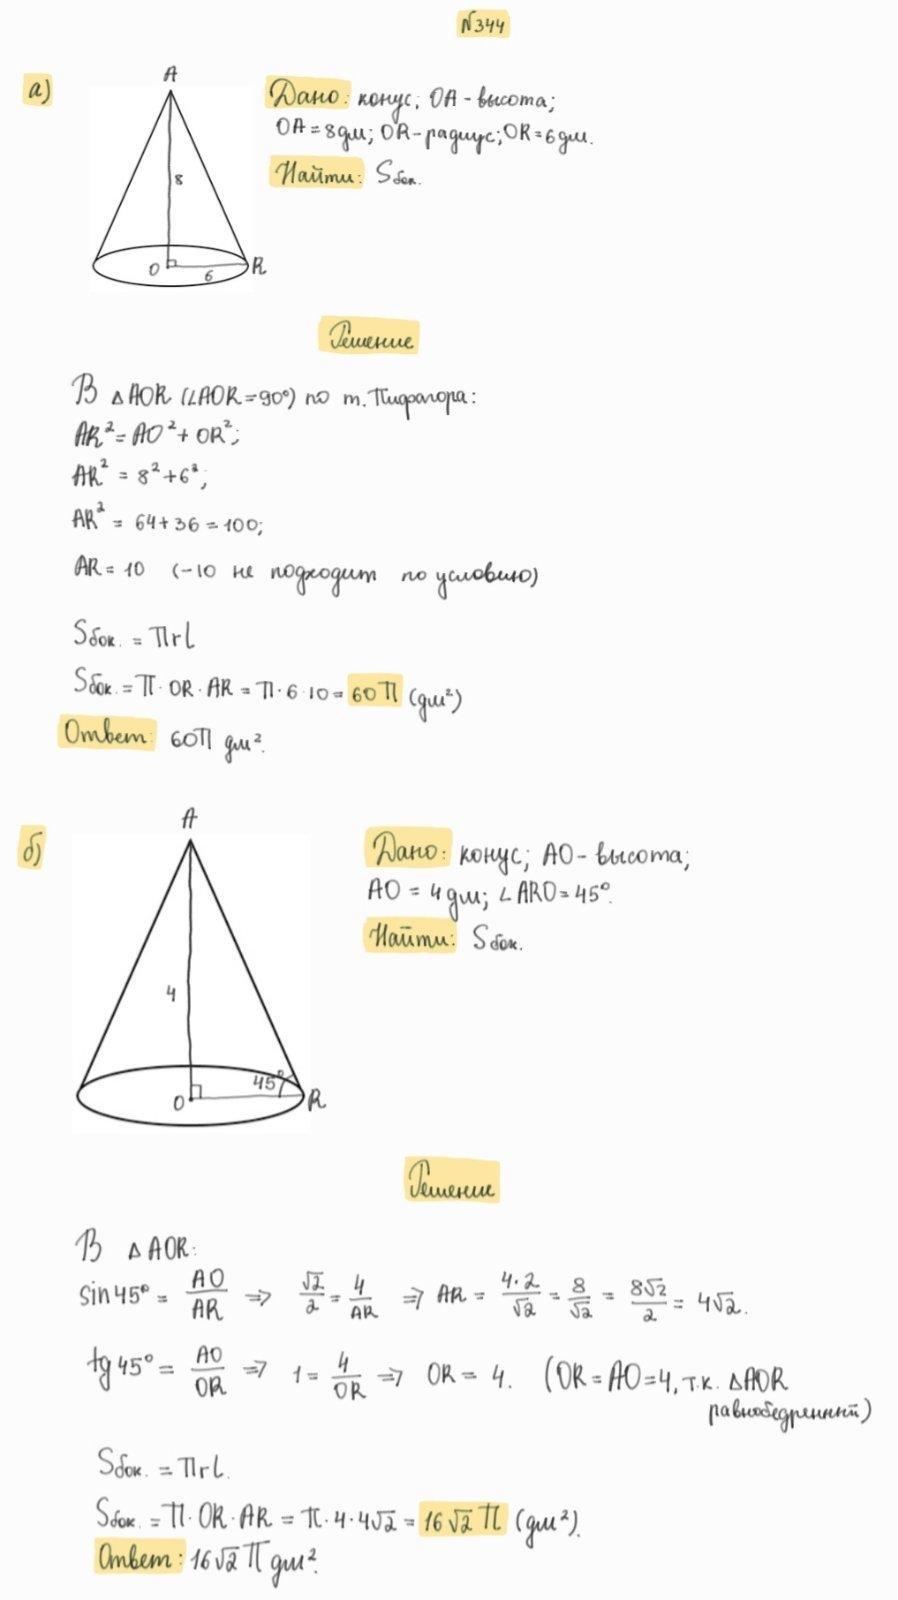 N344
а)
A
8
O
6
R
Дано: конус; OA - высота;
OA = 8 дм; OR - радиус; OR = 6 дм.
Найти: Sбок.
Решение
В △AOR (∠AOR = 90°) по т. Пифагора:
AR² = AO² + OR²;
AR² = 8² + 6²;
AR² = 64 + 36 = 100;
AR = 10 (-10 не подходит по условию)
Sбок. = πrl
Sбок. = π · OR · AR = π · 6 · 10 = 60π (дм²)
Ответ: 60π дм².
б)
A
4
45°
O
R
Дано: конус; AO - высота;
AO = 4 дм; ∠ARO = 45°.
Найти: Sбок.
Решение
В △AOR:
sin45° = AO/AR => √2/2 = 4/AR => AR = 4·2/√2 = 8/√2 = 8√2/2 = 4√2.
tg45° = AO/OR => 1 = 4/OR => OR = 4. (OR = AO = 4, т.к. △AOR
равнобедренный)
Sбок. = πrl.
Sбок. = π · OR · AR = π · 4 · 4√2 = 16√2 π (дм²).
Ответ: 16√2 π дм².